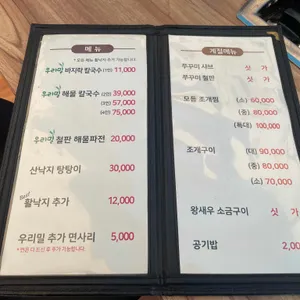 메 뉴
우리밀 바지락 칼국수 (1인) 11,000
우리밀 해물 칼국수 (2인) 39,000
(3인) 57,000
(4인) 75,000
우리밀 철판 해물파전 20,000
산낙지 탕탕이 30,000
활낙지 추가 12,000
우리밀 추가 면사리 5,000
계절메뉴
쭈꾸미 샤브 싯 가
쭈꾸미 철판 싯 가
모듬 조개찜 (소) 60,000
(중) 80,000
(특대) 100,000
조개구이 (대) 90,000
(중) 80,000
(소) 70,000
왕새우 소금구이 싯 가
공기밥 2,00